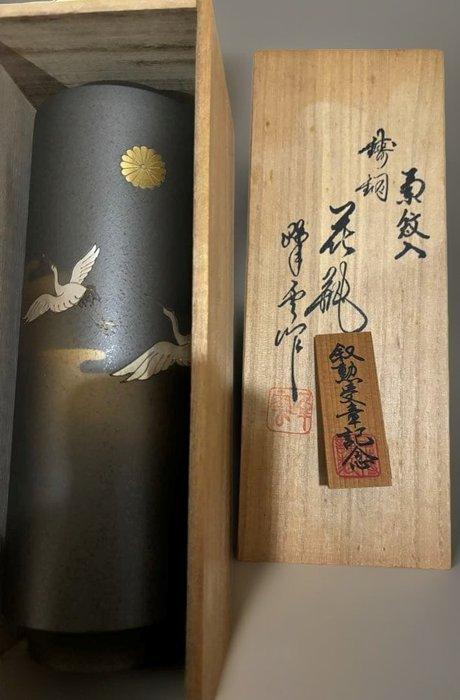 菊紋入
鋳銅
花瓶
峰雲作
叙勲受章記念